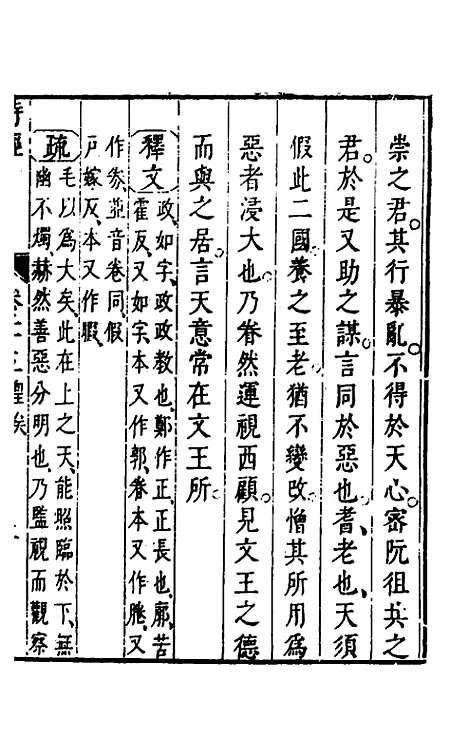 崇之君其行暴亂不得於天心密阮徂共之
君於是又助之謀言同於惡也耆老也天須
假此二國養之至老猶不變改憎其所用爲
惡者浸大也乃眷然運視西顧見文王之德
而與之居言天意常在文王所
釋文 政如字政政教也鄭作正正長也廓苦
霍反又如字本又作郭眷本又作睠又
作𠔉並音卷同假
戸嫁反本又作暇
疏 毛以爲大矣此在上之天能照臨於下無
幽不燭赫然善惡分明也乃監視而觀察
詩經
皇矣